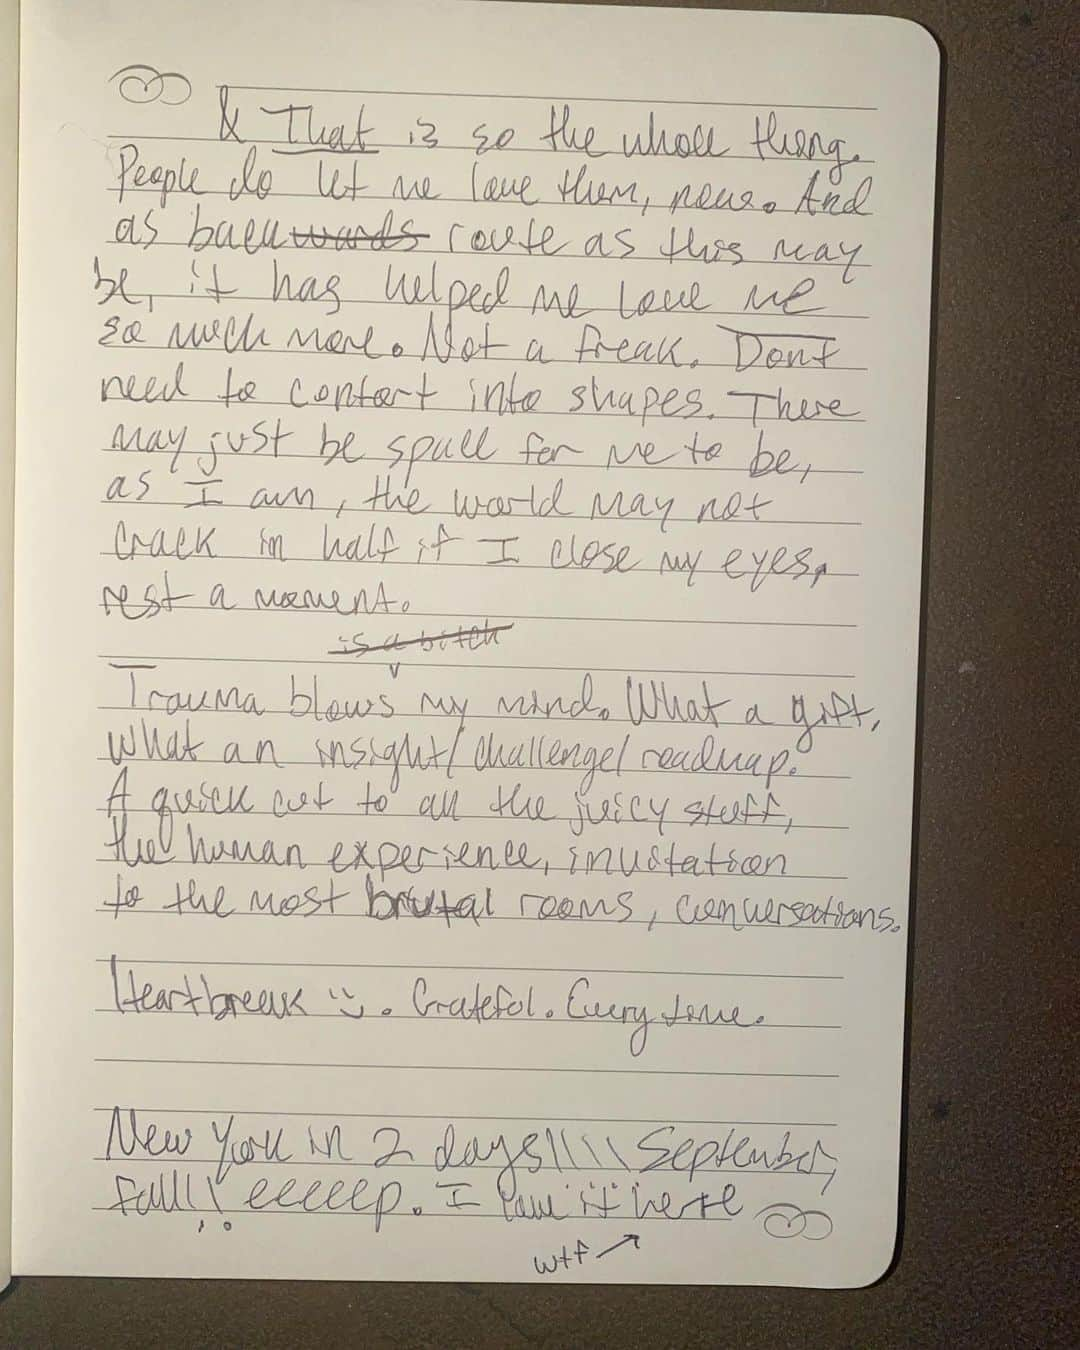 & That is so the whole thing.
People do let me love them, now. And
as backwards route as this may
be, it has helped me love me
so much more. Not a freak. Dont
need to contort into shapes. There
may just be space for me to be,
as I am, the world may not
crack in half if I close my eyes,
rest a moment.
is a bitch
Trauma blows my mind. What a gift,
what an insight/challenge/roadmap.
A quick cut to all the juicy stuff,
the human experience, invitation
to the most brutal rooms, conversations.
Heartbreak :). Grateful. Every time.
New York in 2 days!!!! September,
fall!! eeeeep. I love it here
wtf →